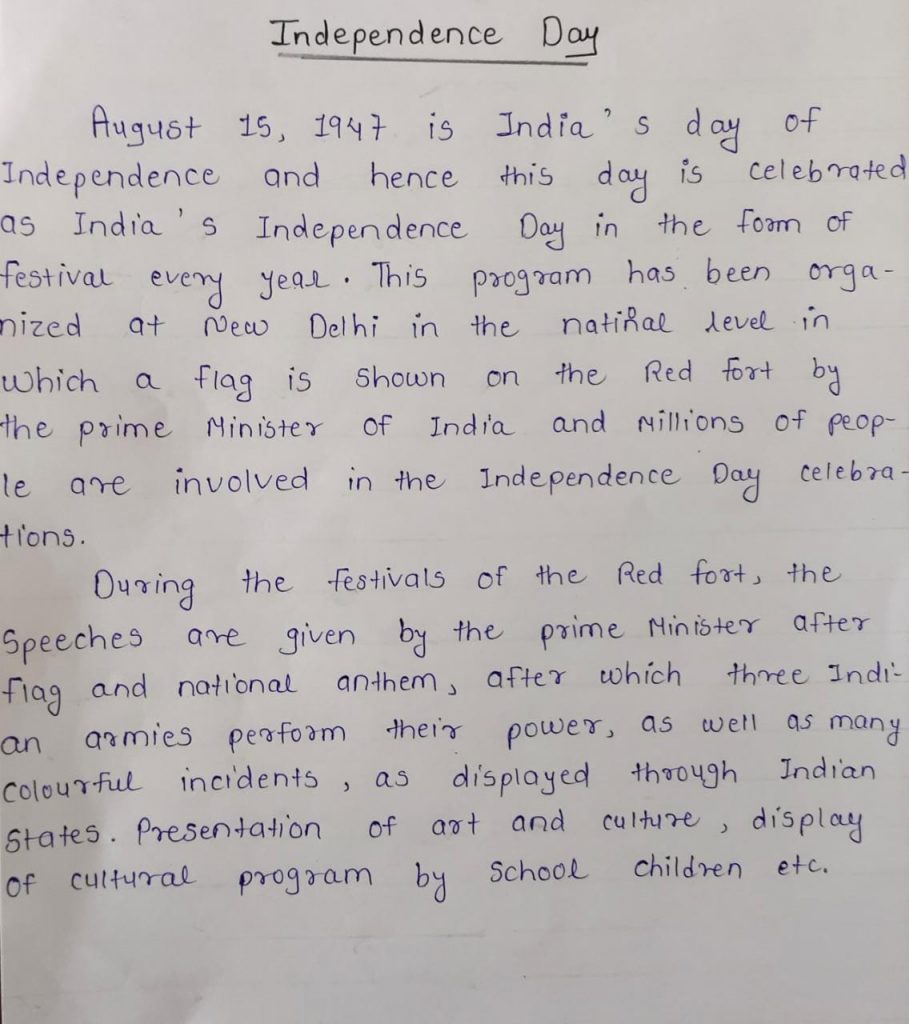 Independence Day
August 15, 1947 is India's day of
Independence and hence this day is celebrated
as India's Independence Day in the form of
festival every year. This program has been orga-
nized at New Delhi in the natinal level in
which a flag is shown on the Red fort by
the prime Minister of India and Millions of peop-
le are involved in the Independence Day celebra-
tions.
During the festivals of the Red fort, the
Speeches are given by the prime Minister after
flag and national anthem, after which three Indi-
an armies perform their power, as well as many
colourful incidents, as displayed through Indian
States. Presentation of art and culture, display
of cultural program by School children etc.